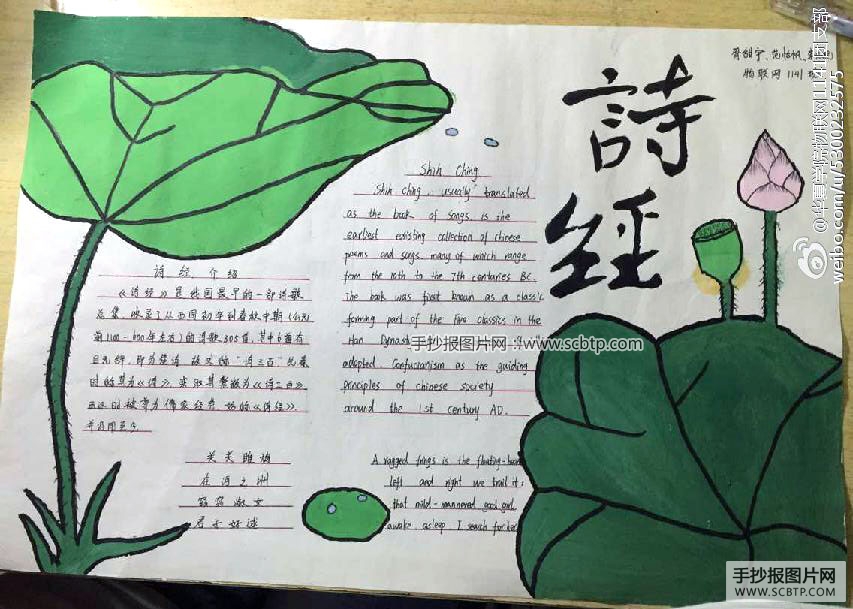 詩
經
物联网1141班
weibo.com/u/5300232575
Shih Ching
Shih Ching, usually translated
as the book of songs is the
earliest existing collection of chinese
poems and songs many of which range
from the 10th to the 7th centuries BC.
The book was first known as a classic
forming part of the five classics in the
Han Dynasty
adopted Confucianism as the guiding
principles of chinese society
around the 1st century AD.
手抄报图片网：www.scbtp.com
诗经介绍
《诗经》是我国最早的一部诗歌
总集，收录了从西周初年到春秋中期（公元
的诗歌305首，其中6首有
"诗三百"先秦
时称其为《诗》，
西汉时被尊为儒家经典，始称《诗经》，
并沿用至今
关关雎鸠
在河之洲
窈窕淑女
君子好逑
A ragged fringe is the floating-heart
left and right we trail it:
that mild-mannered good girl,
awake, asleep, I search for her.
手抄报图片网
WWW.SCBTP.COM